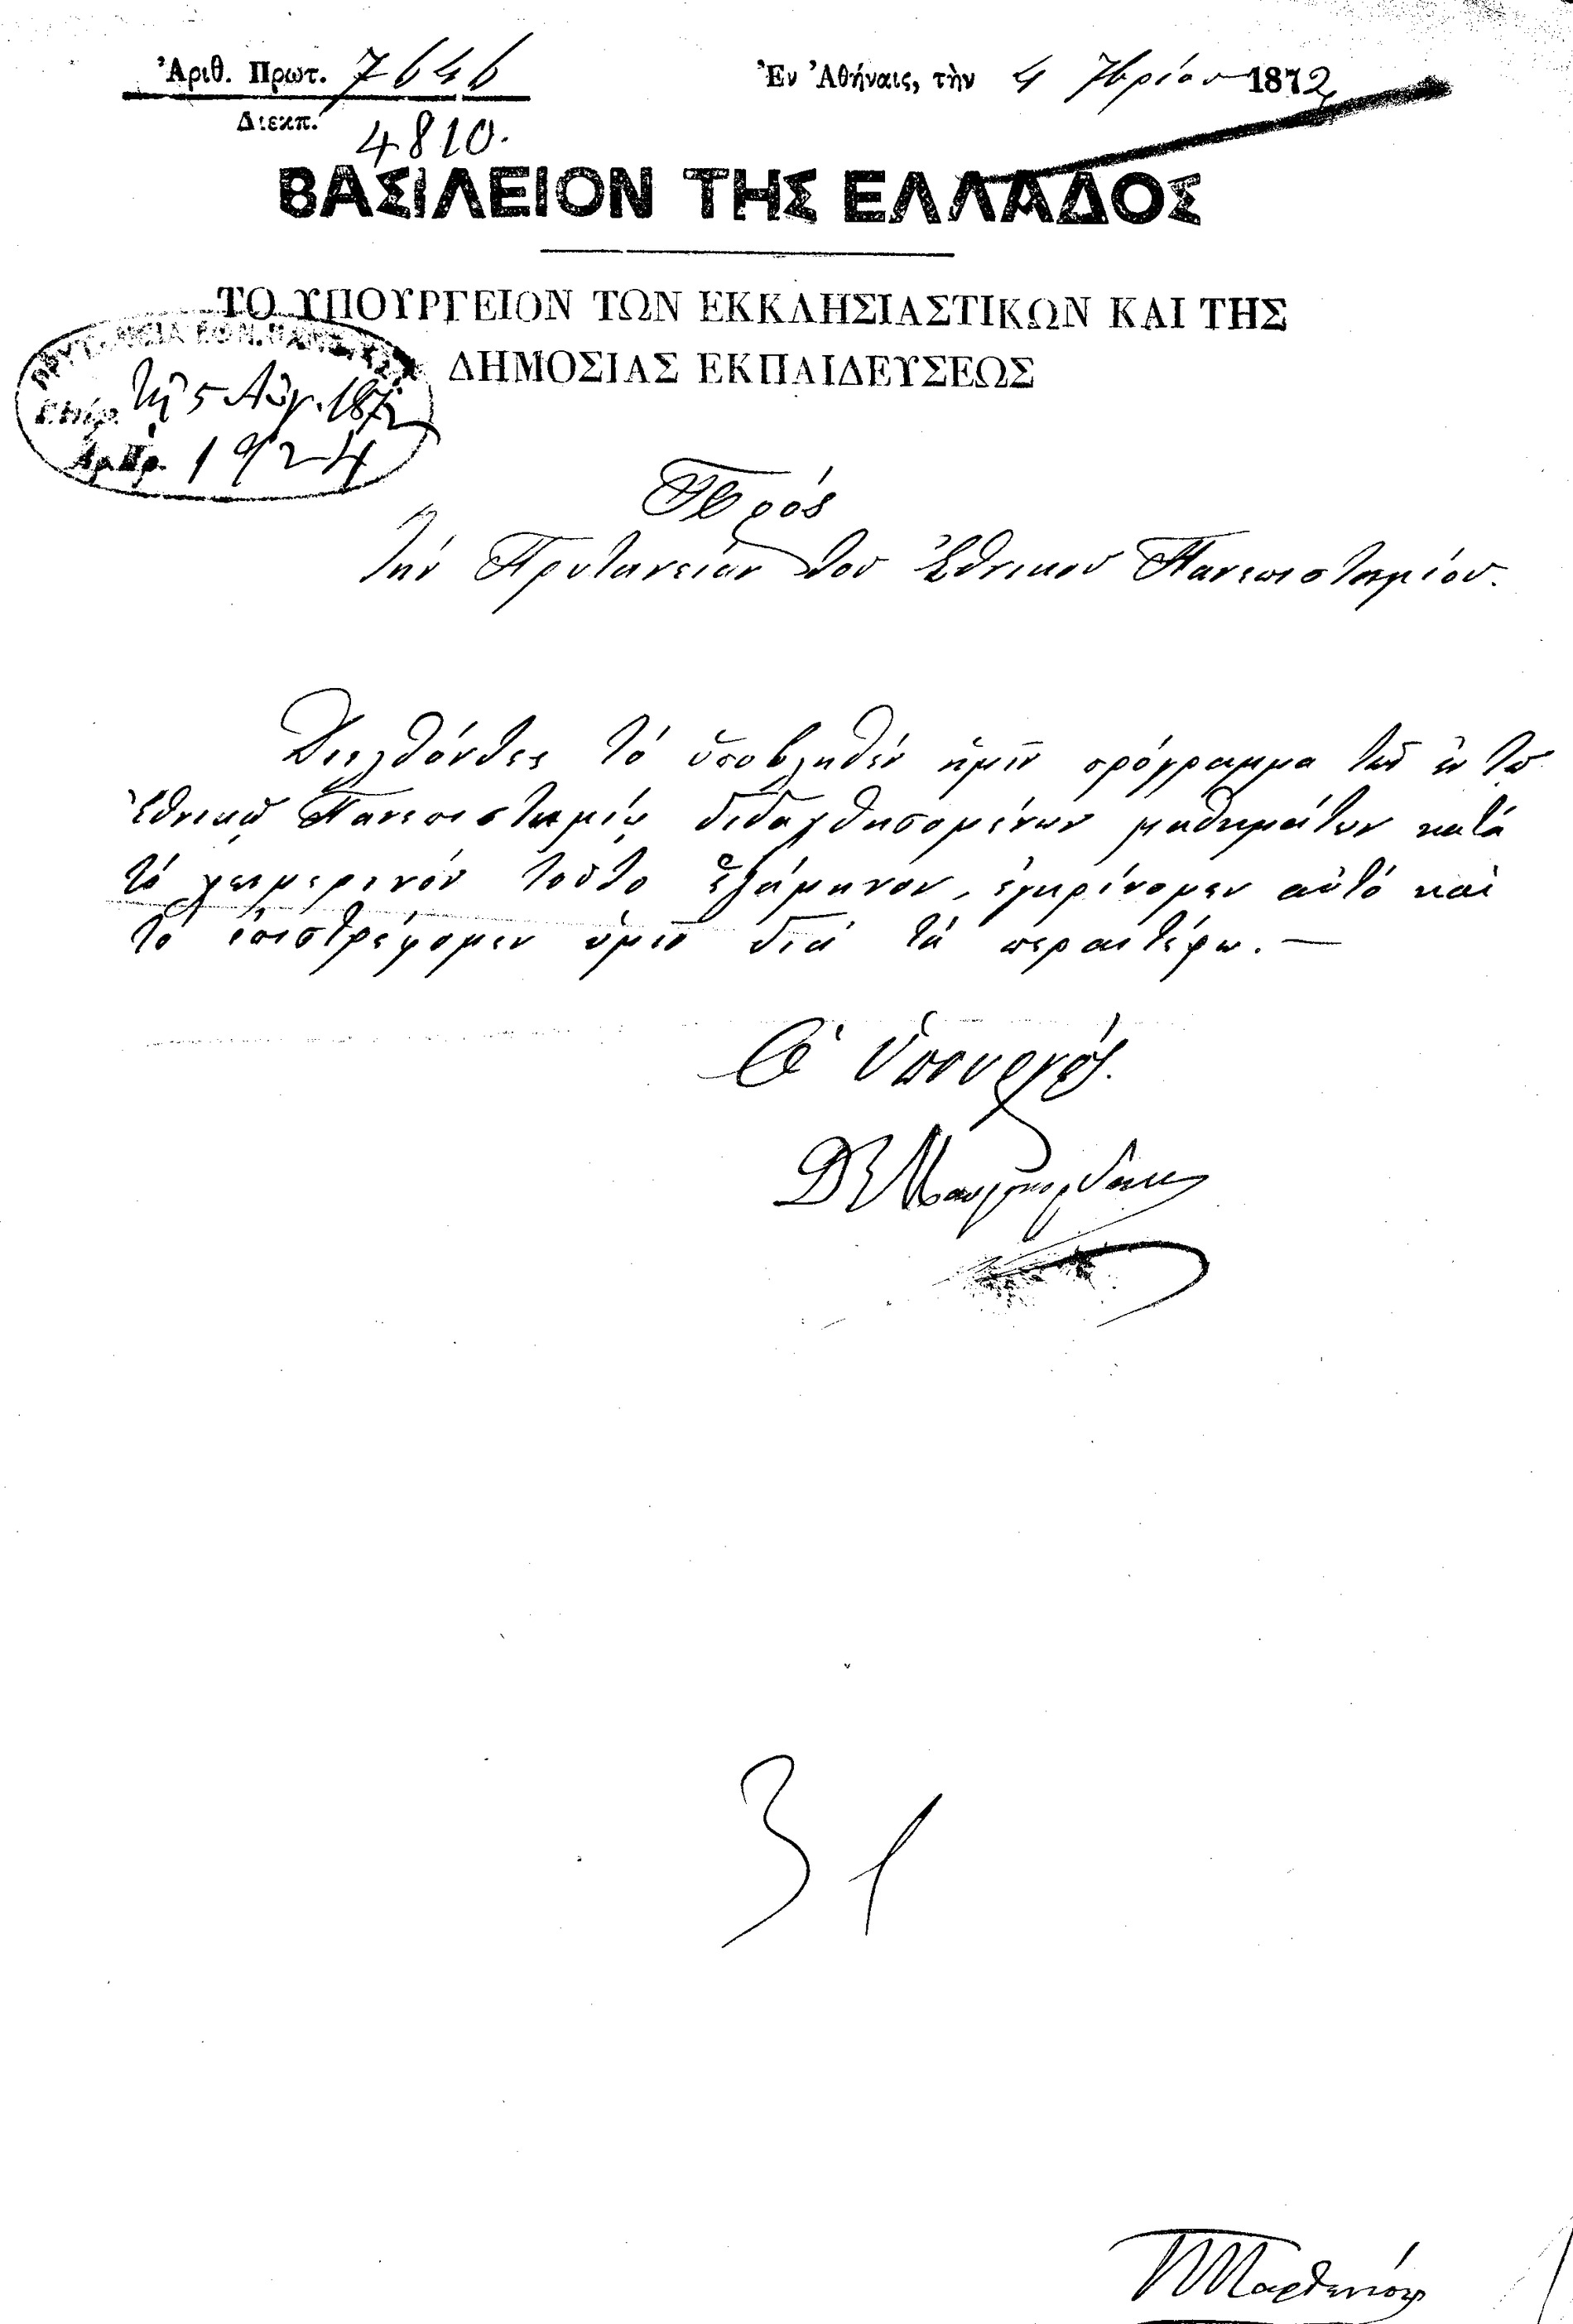 Ἀριθ. Πρωτ. 7646
Διεκπ. 4810.
Ἐν Ἀθήναις, τὴν 4 7βρίου 1872
ΒΑΣΙΛΕΙΟΝ ΤΗΣ ΕΛΛΑΔΟΣ
ΤΟ ΥΠΟΥΡΓΕΙΟΝ ΤΩΝ ΕΚΚΛΗΣΙΑΣΤΙΚΩΝ ΚΑΙ ΤΗΣ
ΔΗΜΟΣΙΑΣ ΕΚΠΑΙΔΕΥΣΕΩΣ
τῇ 5 Αὐγ. 1872
Ἀρ. Πρ. 1924
Πρός
τήν Πρυτανείαν του Ἐθνικου Πανεπιστημίου.
Διελθόντες τό ὑποβληθέν ἡμῖν πρόγραμμα τῶν ἐν τῳ
Ἐθνικῷ Πανεπιστημίῳ διδαχθησομένων μαθημάτων κατά
τό χειμερινόν τοῦτο ἑξάμηνον, ἐγκρίνομεν αὐτό καί
τό ἐπιστρέφομεν ὑμῖν διά τά περαιτέρω. —
Ὁ Ὑπουργός.
31